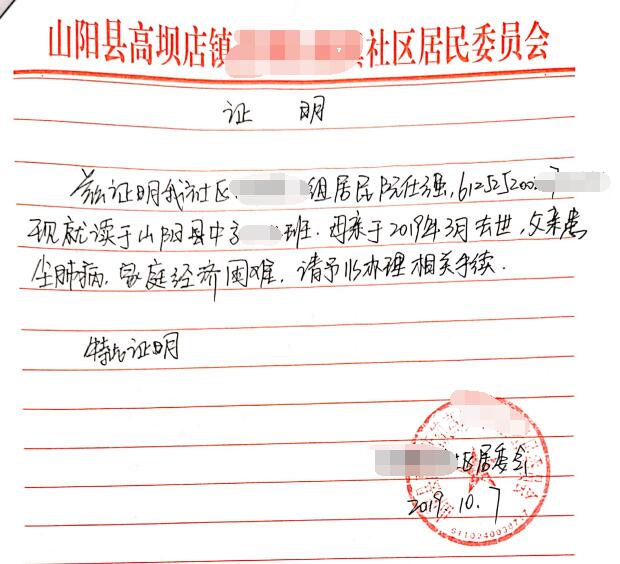 山阳县高坝店镇 社区居民委员会
证 明
兹证明我社区 组居民阮仕强,612525200
现就读于山阳县中学 班.母亲于2019年3月去世,父亲患
尘肺病,家庭经济困难,请予以办理相关手续.
特此证明
社区居委会
2019.10.7